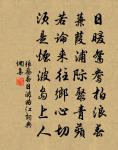 日暖鴛鴦拍浪春
蒹葭浦際聚青蘋
若論来往鄉心切
須是煙波島上人